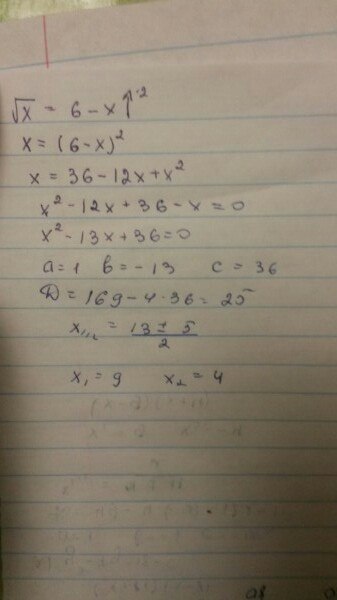 √x = 6 - x ↑²
x = (6-x)²
x = 36 - 12x + x²
x² - 12x + 36 - x = 0
x² - 13x + 36 = 0
a = 1 b = -13 c = 36
D = 169 - 4·36 = 25
x₁,₂ = (13 ± 5)/2
x₁ = 9 x₂ = 4